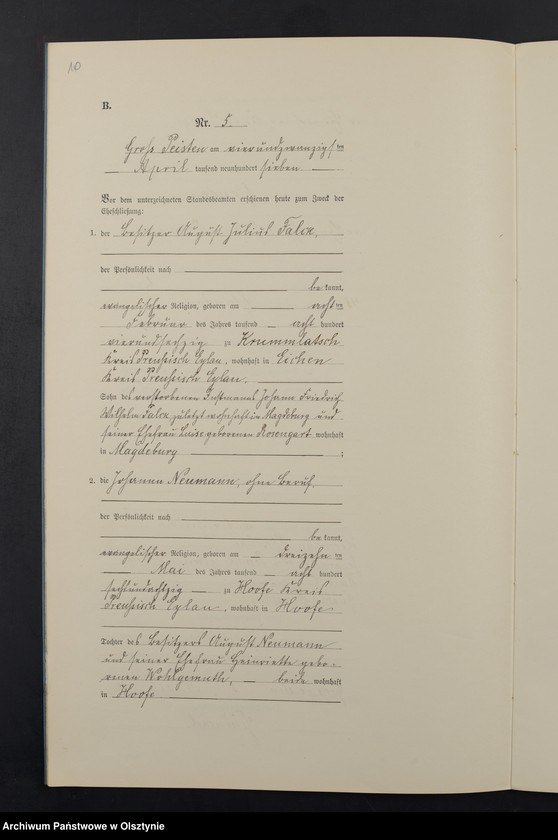 10
B.
Nr. 5.
Gross Peisten am vierundzwanzigsten
April tausend neunhundert sieben
Vor dem unterzeichneten Standesbeamten erschienen heute zum Zweck der
Eheschließung:
1. der Besitzer August Julius Falck,
der Persönlichkeit nach
bekannt,
evangelischer Religion, geboren am achten
Februar des Jahres tausend acht hundert
vierundsechzig zu Krummlatsch
Kreis Preußisch Eylau, wohnhaft in Eichen
Kreis Preußisch Eylau.
Sohn des verstorbenen Instmanns Johann Friedrich
Wilhelm Falck, zuletzt wohnhaft in Magdeburg und
seiner Ehefrau Luise geborenen Rosengart wohnhaft
in Magdeburg ;
2. die Johanna Neumann, ohne Beruf
der Persönlichkeit nach
bekannt,
evangelischer Religion, geboren am dreizehnten
Mai des Jahres tausend acht hundert
sechsundachtzig zu Hoofe Kreis
Preußisch Eylau, wohnhaft in Hoofe
Tochter des Besitzers August Neumann
und seiner Ehefrau Heinriette gebo-
renen Wohlgemuth, beide wohnhaft
in Hoofe
Archiwum Państwowe w Olsztynie